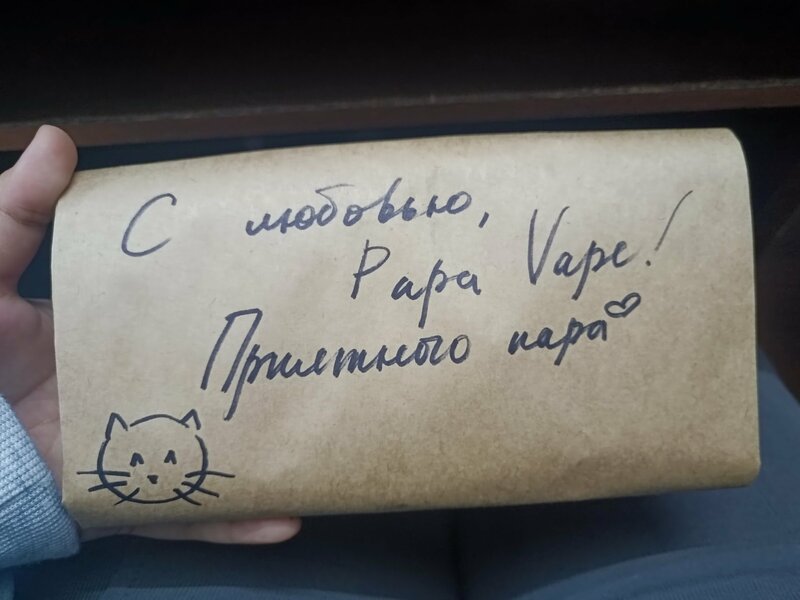 С любовью,
Papa Vape!
Приятного пара